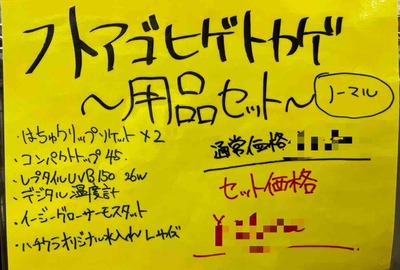 フトアゴヒゲトカゲ
~用品セット~
ノーマル
・はちゅクリップソケット×2
・コンパクトトップ 45.
・レプタイルUVB150 26W
・デジタル温度計
・イージーグローサーモスタット
・ハチクラオリジナル水入れ Lサイズ
通常価格
セット価格
¥